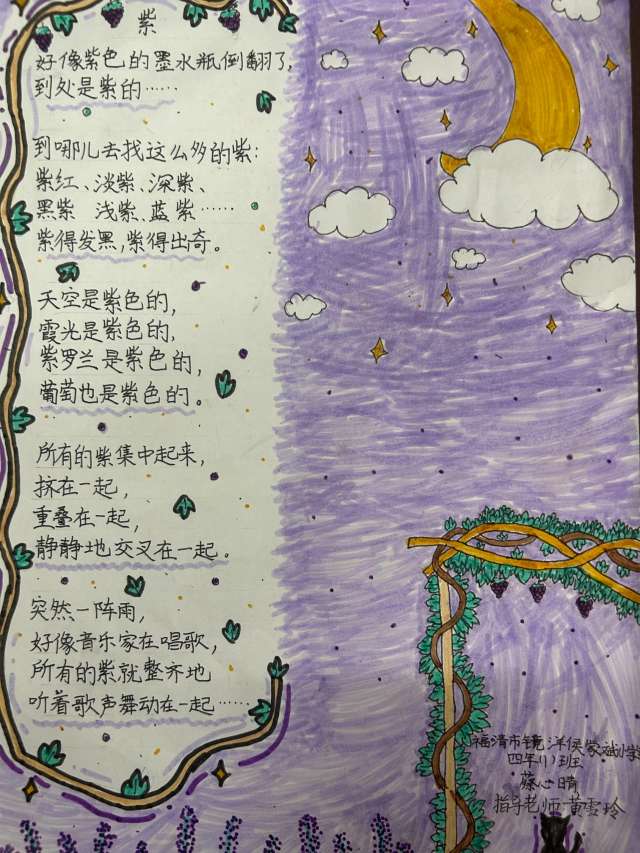 紫
好像紫色的墨水瓶倒翻了,
到处是紫的……
到哪儿去找这么多的紫:
紫红、淡紫、深紫、
黑紫 浅紫、蓝紫……
紫得发黑,紫得出奇。
天空是紫色的,
霞光是紫色的,
紫罗兰是紫色的,
葡萄也是紫色的。
所有的紫集中起来,
挤在一起,
重叠在一起,
静静地交叉在一起。
突然一阵雨,
好像音乐家在唱歌,
所有的紫就整齐地
听着歌声舞动在一起……
福清市镜洋侯蒙斌小学
四年(1)班
蔡心晴
指导老师黄雪玲